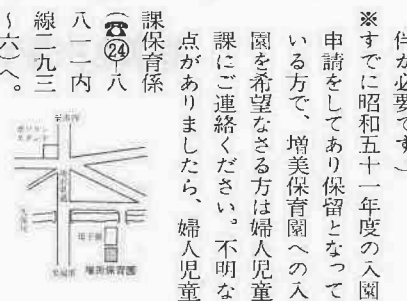 伴が必要です。)
※すでに昭和五十一年度の入園
申請をしてあり保留となって
いる方で、増美保育園への入
園を希望なさる方は婦人児童
課にご連絡ください。不明な
点がありましたら、婦人児童
課保育係
(☎㉔一八
八一一内
線二九三
〜六)へ。
増美保育園